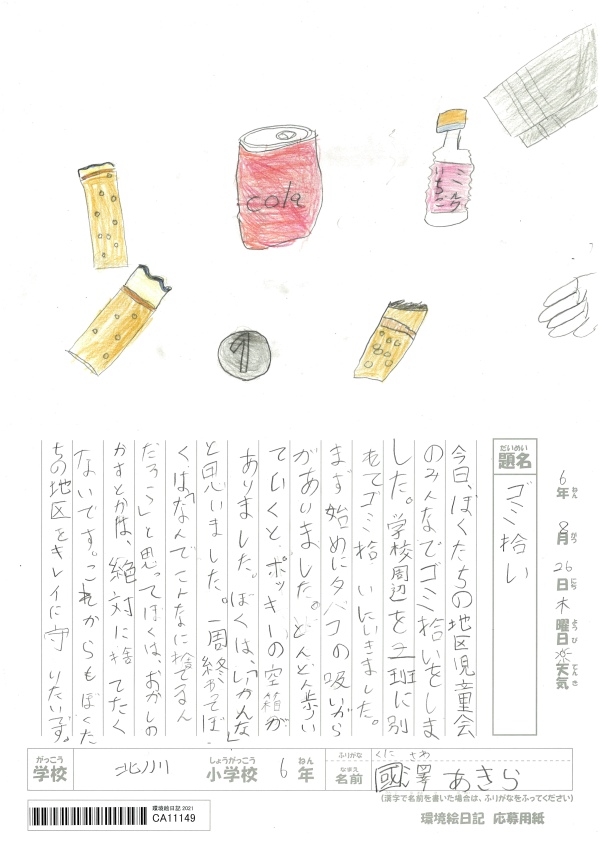 cola
ミルク
いちご
1
6年ねん 8月がつ 26日にち 木曜日ようび 天気てんき
だいめい
題名
ゴミ拾い
今日、ぼくたちの地区児童会
のみんなでゴミ拾いをしま
した。学校周辺を二班に別
れてゴミ拾いにいきました。
まず始めにタバコの吸いがら
がありました。どんどん歩い
ていくと、ポッキーの空箱が
ありました。ぼくは、「いかんな」
と思いました。一周終わてぼ
くは、「なんでこんなに捨てるん
だろう」と思ってぼくは、おかしの
かすとかは、絶対に捨てたく
ないです。これからもぼくた
ちの地区をキレイに守りたいです。
がっこう
学校
北川
しょうがっこう
小学校
6
ねん
年
ふりがな
くに さわ
なまえ
名前
國澤 あきら
(漢字で名前を書いた場合は、ふりがなをふってください)
環境絵日記 2021
CA11149
環境絵日記 応募用紙